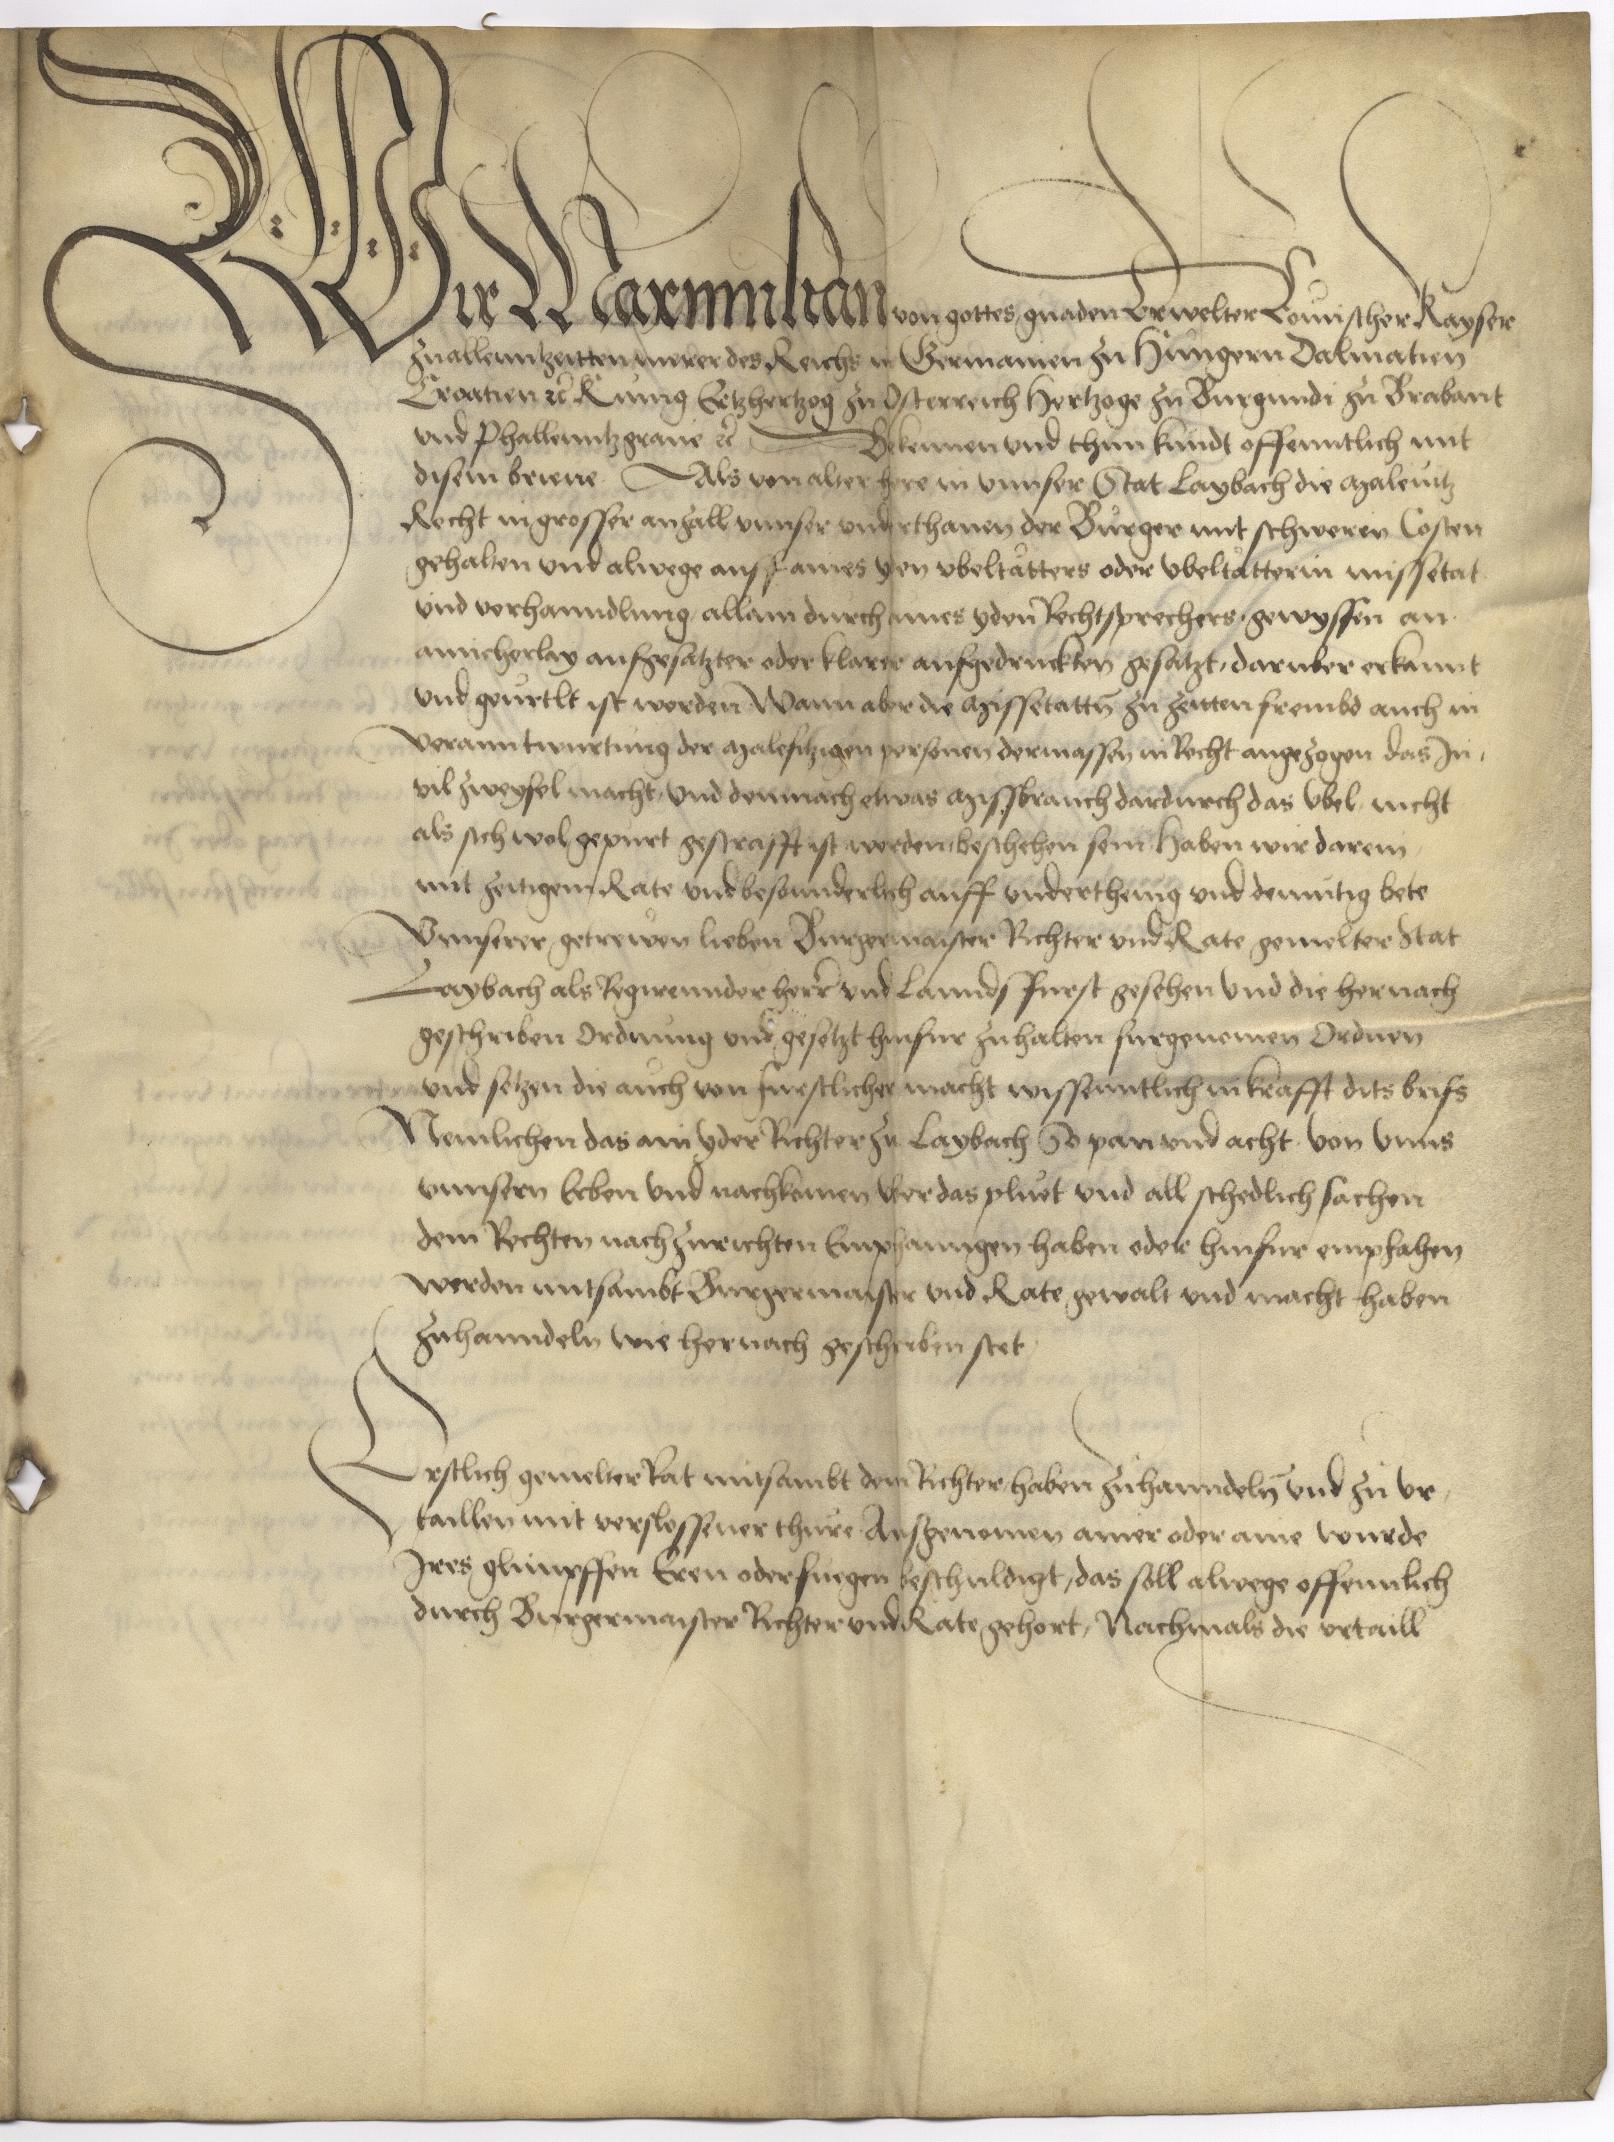 Wir Maximilian von gottes gnaden Erwelter Romischer Kayser
zu allenntzeitten merer des Reichs in Germanien zu Hungern Dalmatien
Croatien etc Kunig Ertzhertzog zu Osterreich Hertzoge zu Burgundi zu Brabant
vnd Phallenntzgraue etc Bekennen vnd thun kundt offenntlich mit
disem brieue Als von alter here in vnnser Stat Laybach die Maleuitz
Recht in grosser anzall vnnser vnderthanen der Burger mit schweren Costen
gehalten vnd alwege auff aines yden vbeltätters oder vbeltätterin missetat
vnd verhanndlung allain durch aines yden Rechtsprechers gewyssen an
ainicherlay aufgesatzter oder klarer aufgedruckten gesatzt, daruber erkannt
vnd geurtlt ist worden Wann aber die Missetatten zu zeitten frembd auch in
Veranntwurtung der Malefitzigen personen dermassen in Recht angezogen das In
vil zweyfel macht, Vnd demnach etwas Missbrauch dardurch das Vbel nicht
als sich wol gepurt gestrafft ist worden beschehen sein Haben wir darein
mit zeitigem Rate vnd besonnderlich auff vnderthenig vnd demutig bete
Vnnserer getrewen lieben Burgermaister Richter vnd Rate gemelter Stat
Laybach als Regierennder herr vnd Lannds Furst gesehen Vnd die hernach
geschriben Ordnung vnd gesetzt hinfur zuhalten furgenomen Ordnen
vnd setzen die auch von furstlicher macht wissenntlich in krafft dits briefs
Nemlichen das ain yder Richter zu Laybach So pan vnd acht von Vnns
vnnsern Erben Vnd nachkomen vber das pluet vnd all schedlich sachen
dem Rechten nach zurichten Emphanngen haben oder hinfur emphahen
werden mitsambt Burgermaister vnd Rate gewalt vnd macht haben
zuhanndeln wie hernach geschriben stet
Erstlich gemelter Rat mitsambt dem Richter haben zuhanndeln Vnd zu vr
taillen mit verslossner thure Ausgenomen ainer oder aine wurde
Ires glimpffen Eren oder fuegen beschuldigt, das soll alwege offennlich
durch Burgermaister Richter vnd Rate gehort, Nachmals die vrtaill